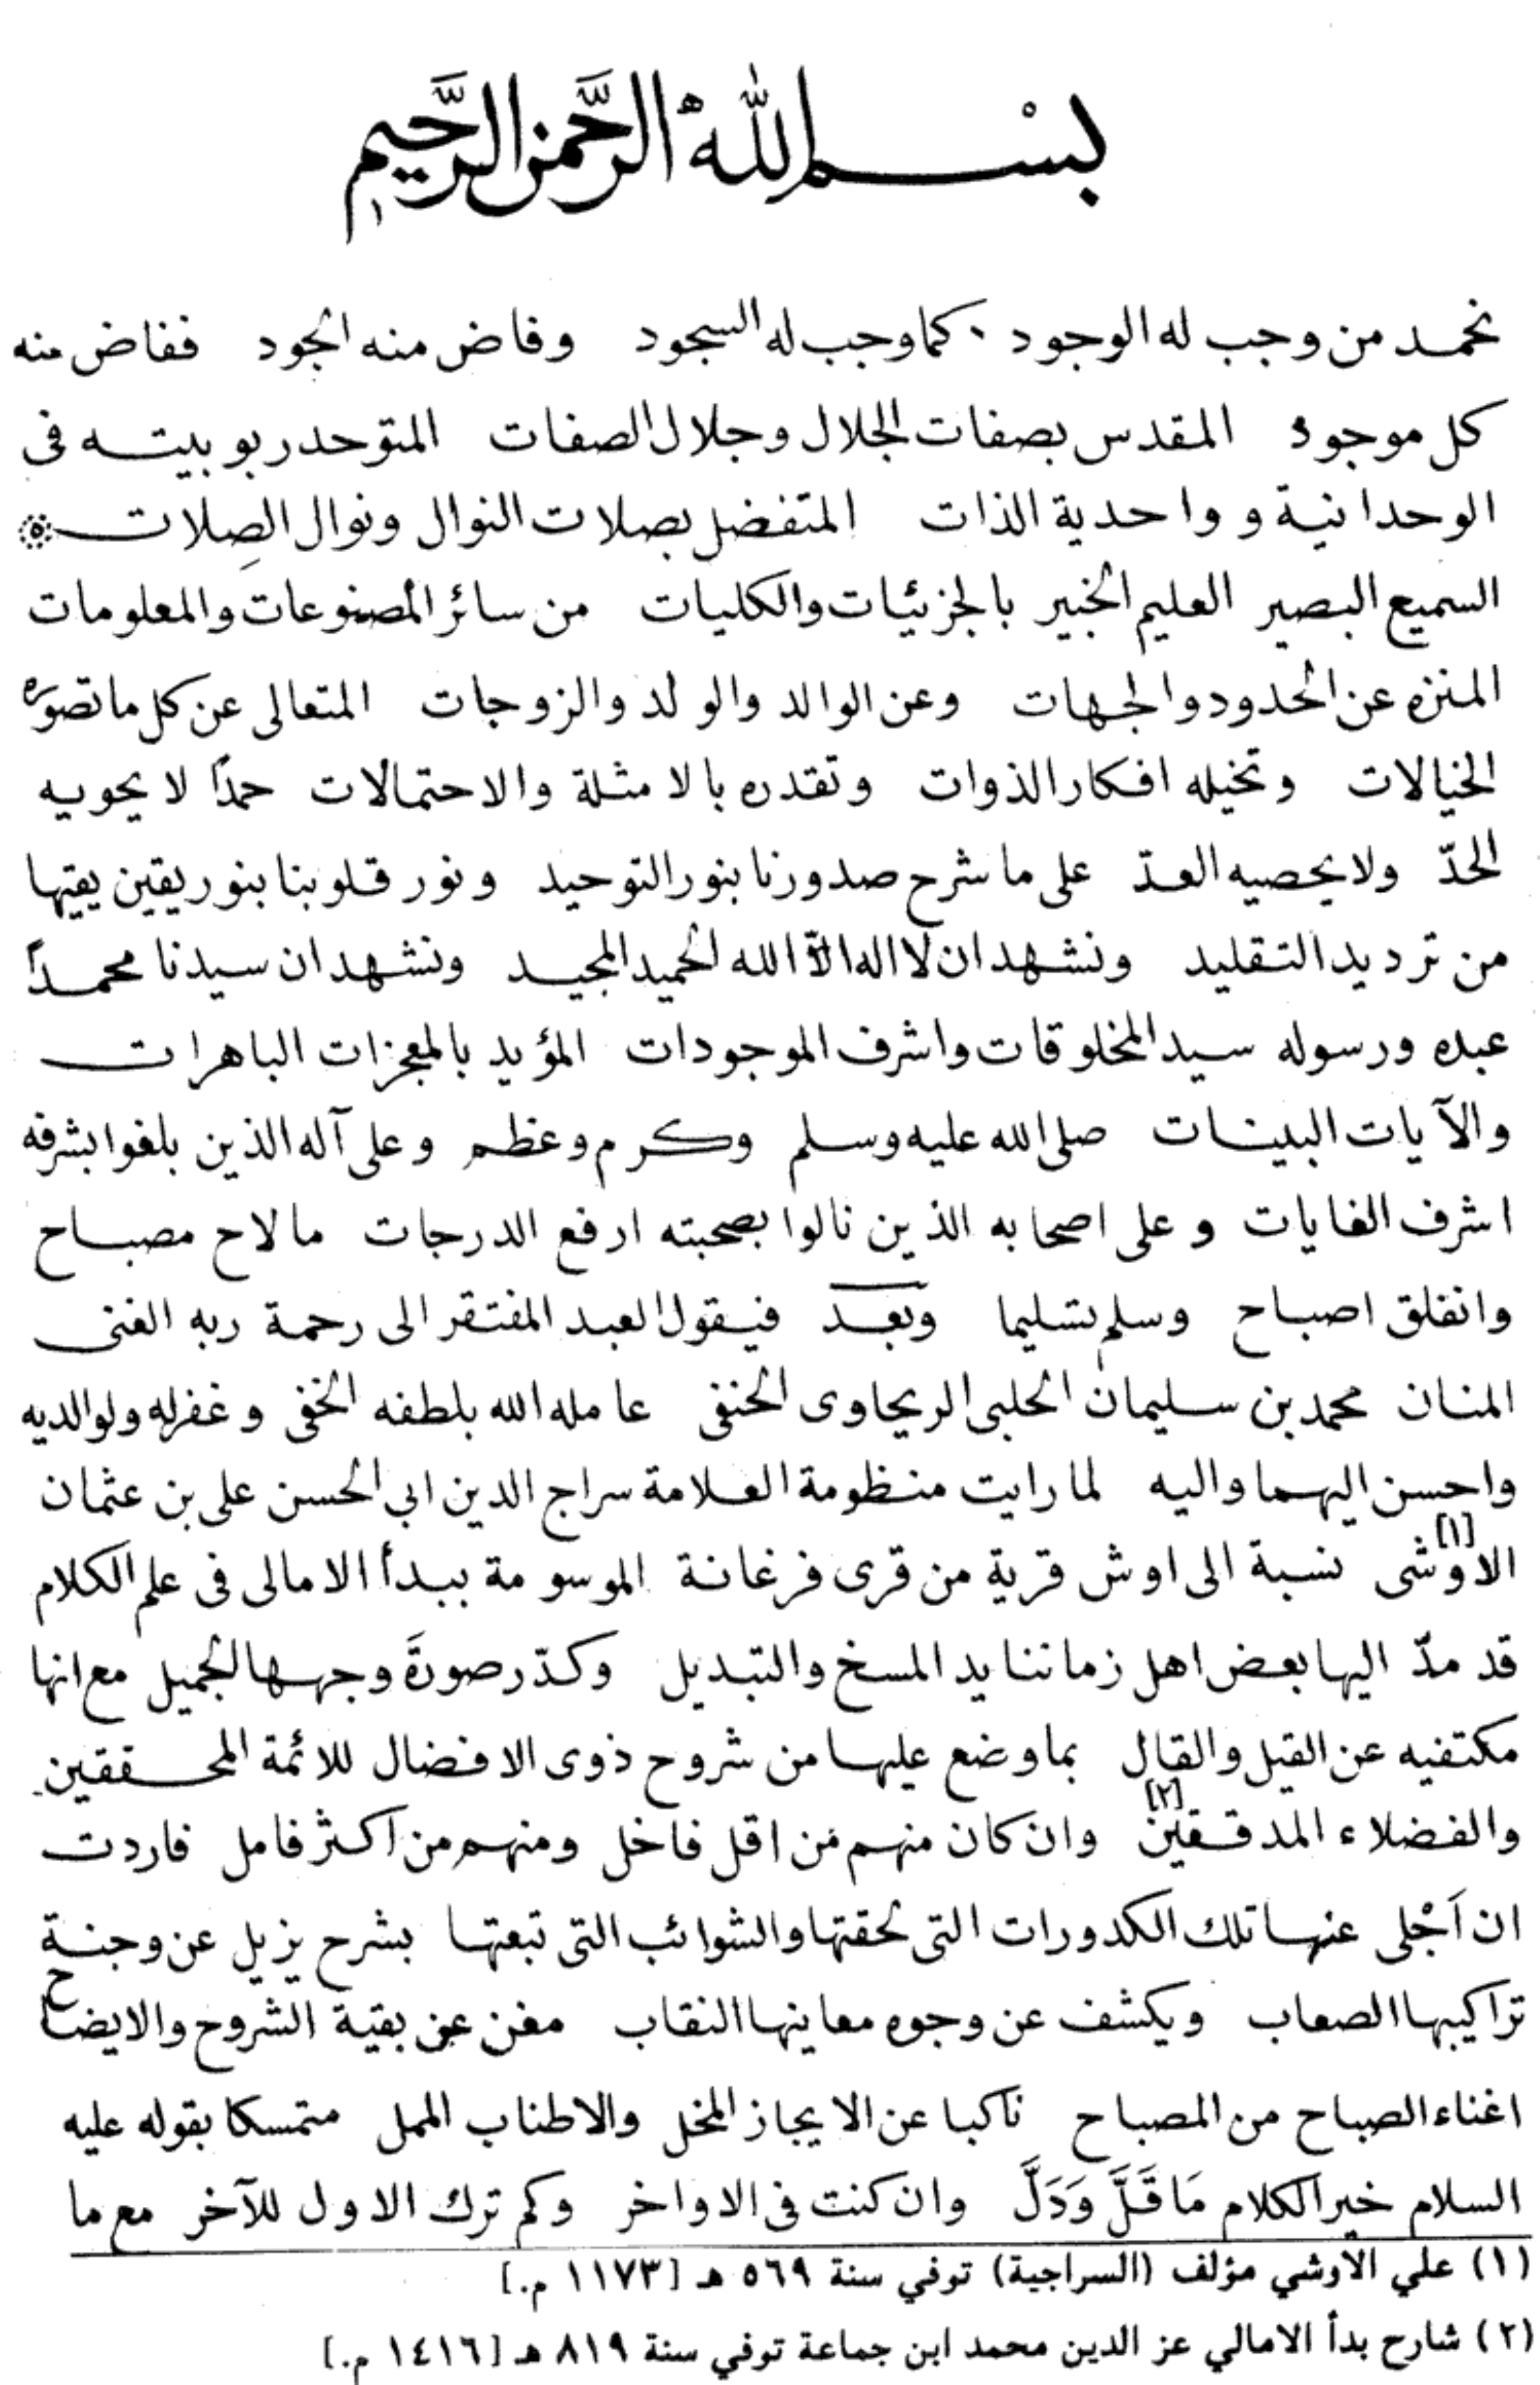 بسم الله الرحمن الرحيم
نحمد من وجب له الوجود ٠ كما وجب له السجود وفاض منه الجود ففاض منه
كل موجود المقدس بصفات الجلال وجلال الصفات المتوحد ربوبيته فى
الوحدانية وواحدية الذات المتفضل بصلات النوال ونوال الصِلات
السميع البصير العليم الخبير بالجزئيات والكليات من سائر المصنوعات والمعلومات
المنزه عن الحدود والجهات وعن الوالد والولد والزوجات المتعالى عن كل ما تصوره
الخيالات وتخيله افكار الذوات وتقدره بالامثلة والاحتمالات حمدًا لا يحويه
الحدّ ولا يحصيه العدّ على ما شرح صدورنا بنور التوحيد ونور قلوبنا بنور يقين يقيها
من ترديد التقليد ونشهد ان لا اله الاّ الله الحميد المجيد ونشهد ان سيدنا محمدًا
عبده ورسوله سيد المخلوقات واشرف الموجودات المؤيد بالمعجزات الباهرات
والآيات البينات صلى الله عليه وسلم وكرم وعظم وعلى آله الذين بلغوا بشرفه
اشرف الغايات وعلى اصحابه الذين نالوا بصحبته ارفع الدرجات ما لاح مصباح
وانفلق اصباح وسلم تسليما وبعد فيقول العبد المفتقر الى رحمة ربه الغنى
المنان محمد بن سليمان الحلبى الريحاوى الحنفى عامله الله بلطفه الخفى وغفر له ولوالديه
واحسن اليهما واليه لما رايت منظومة العلامة سراج الدين ابى الحسن على بن عثمان
الاوشى [١] نسبة الى اوش قرية من قرى فرغانة الموسومة ببدأ الامالى فى علم الكلام
قد مدّ اليها بعض اهل زماننا يد المسخ والتبديل وكدّر صورةَ وجهها الجميل مع انها
مكتفيه عن القيل والقال بما وضع عليها من شروح ذوى الافضال للائمة المحققين
والفضلاء المدققين [٢] وان كان منهم مَن اقل فاخل ومنهم من اكثر فامل فاردت
ان اَجْلى عنها تلك الكدورات التى لحقتها والشوائب التى تبعتها بشرح يزيل عن وجنة
تراكيبها الصعاب ويكشف عن وجوه معاينها النقاب مغن عن بقية الشروح والايضاح
اغناء الصباح من المصباح ناكبا عن الايجاز المخل والاطناب الممل متمسكا بقوله عليه
السلام خير الكلام مَا قَلَّ وَدَلَّ وان كنت فى الاواخر وكم ترك الاول للآخر مع ما
(١) علي الاوشي مؤلف (السراجية) توفي سنة ٥٦٩ هـ [١١٧٣ م.]
(٢) شارح بدأ الامالي عز الدين محمد ابن جماعة توفي سنة ٨١٩ هـ [١٤١٦ م.]